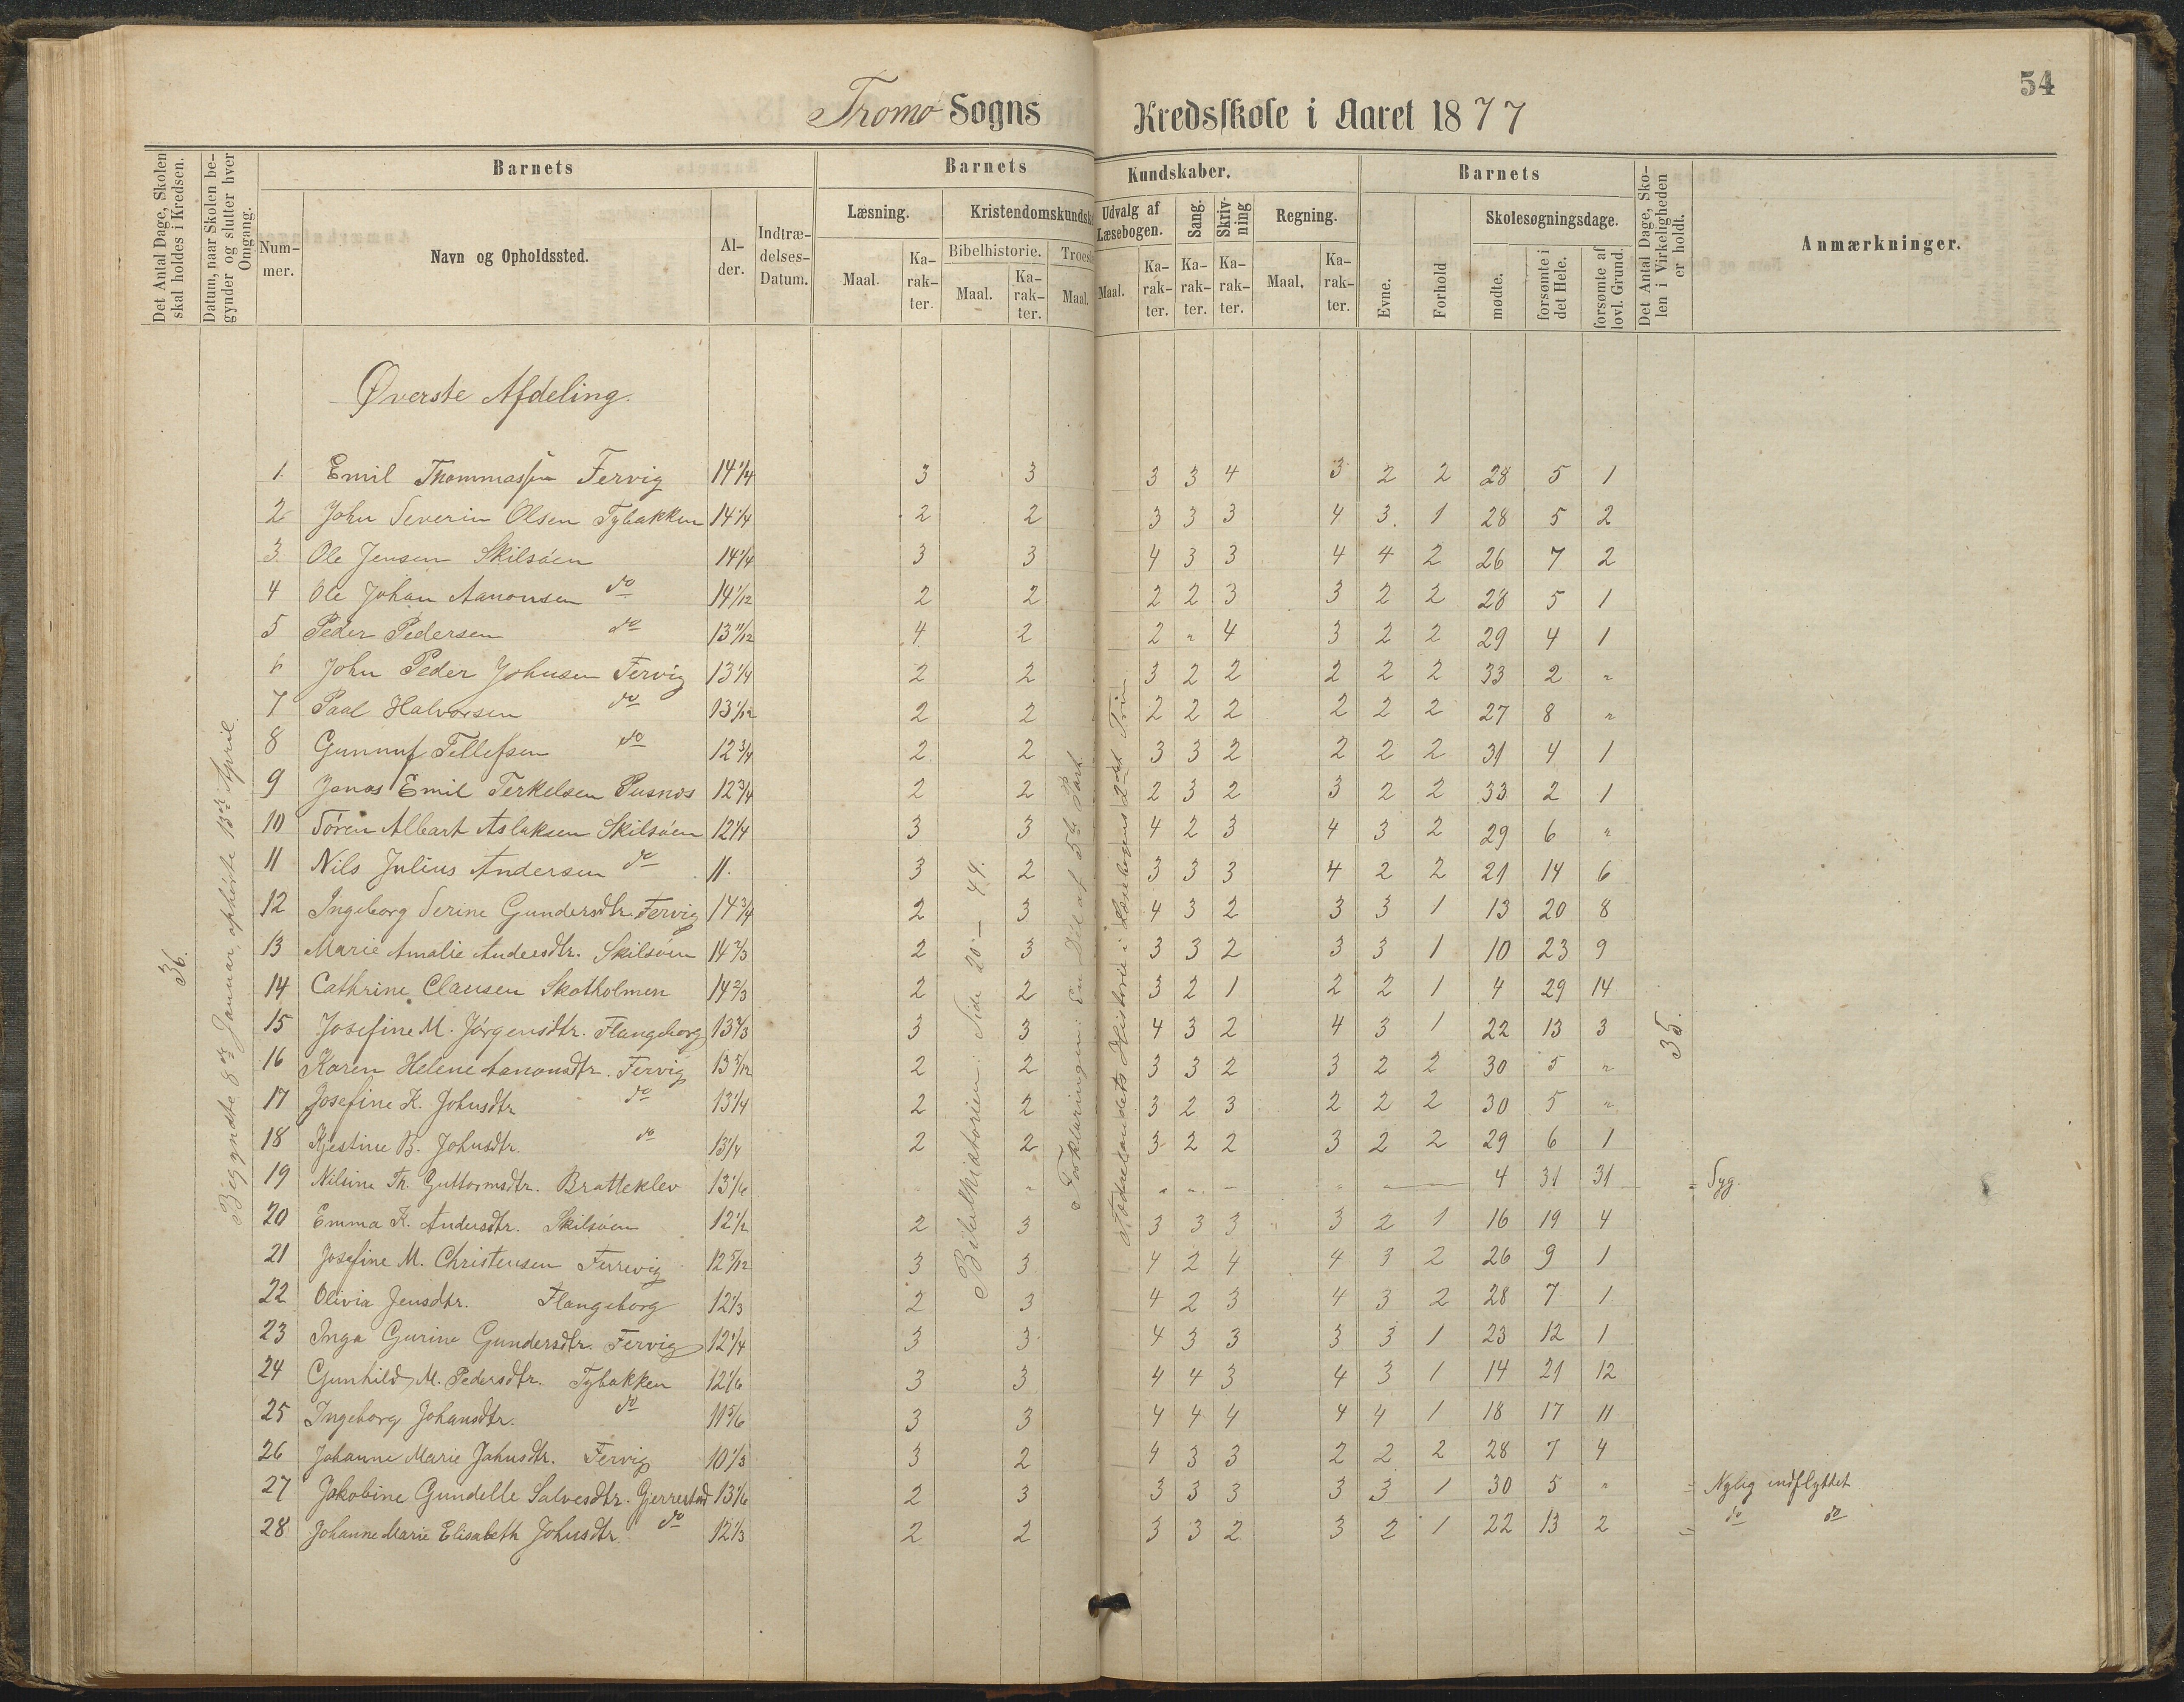 54
Tromø Sogns Kredsskole i Aaret 1877
Det Antal Dage, Skolen skal holdes i Kredsen.
Datum, naar Skolen begynder og slutter hver Omgang.
Barnets
Nummer.
Navn og Opholdssted.
Alder.
Indtrædelses-Datum.
Barnets Kundskaber.
Læsning.
Maal.
Karakter.
Kristendomskundsk
Bibelhistorie.
Maal.
Karakter.
Troesl
Maal.
Udvalg af Læsebogen.
Maal.
Karakter.
Sang.
Karakter.
Skrivning
Karakter.
Regning.
Maal.
Karakter.
Barnets
Evne.
Forhold
Skolesøgningsdage.
mødte.
forsømte i det Hele.
forsømte af lovl. Grund.
Det Antal Dage, Skolen i Virkeligheden er holdt.
Anmærkninger.
Øverste Afdeling.
36.
Begyndte 8de Januar, ophörte 13de April.
Bibelhistorien: Side 20 – 44.
Forklaringen: En Del af 5te Part
Fædrelandets Historie i Læsebogens 2det Trin.
35.
1. Emil Thommassen Fervig 14 1/4 3 3 3 3 4 3 2 2 28 5 1
2 John Severin Olsen Tybakken 14 1/4 2 2 3 3 3 4 3. 1 28 5 2
3. Ole Jensen Skilsöen 14 1/4 3 3 4 3 3 4 4 2 26 7 2
4 Ole Johan Aanonsen do 14 1/12 2 2 2 2 3 3 2 2 28 5 1
5 Peder Pedersen do 13 11/12 4 2 2 " 4 3 2 2 29 4 1
6 John Peder Johnsen Fervig 13 1/4 2 2 3 2 2 2 2 2 33 2 "
7 Paal Halvorsen do 13 1/12 2 2 2 2 2 2 2 2 27 8 "
8 Gunnuf Tellefsen do 12 3/4 2 2 3 3 2 2 2 2 31 4 1
9 Jonas Emil Terkelsen Pusnes 12 3/4 2 2 2 3 2 3 2 2 33 2 1
10 Sören Albart Aslaksen Skilsöen 12 1/4 3 3 4 2 3 4 3 2 29 6 "
11 Nils Julius Andersen do 11. 3 2 3 3 3 4 2 2 21 14 6
12 Ingeborg Serine Gundersdtr. Fervig 14 3/4 2 3 4 3 2 3 3 1 13 20 8
13 Marie Amalie Andersdtr. Skilsöen 14 2/3 2 3 3 3 2 3 3 1 10 23 9
14 Cathrine Clausen Skotholmen 14 2/3 2 2 3 2 1 2 2 1 4 29 14
15 Josefine M. Jörgensdtr. Flangeborg 13 2/3 3 3 4 3 2 4 3 1 22 13 3
16 Karen Helene Aanonsdtr. Fervig 13 5/12 2 2 3 3 2 3 2 2 30 5 "
17 Josefine K. Johnsdtr do 13 1/4 2 2 3 2 3 2 2 2 30 5 "
18 Kjestine B. Johnsdtr. do 13 1/4 2 2 3 2 2 3 2 2 29 6 1
19 Nilsine Th. Guttormsdtr. Bratteklev 13 1/6 " " " – " — 4 31 31 = Syg.
20 Emma K. Andersdtr. Skilsöen 12 1/2 2 3 3 3 3 3 2 1 16 19 4
21 Josefine M. Christensen Furevig 12 5/12 3 3 4 2 4 4 3 2 26 9 1
22 Olivia Jensdtr. Flangeborg 12 1/3 2 3 4 2 3 4 3 2 28 7 1
23 Inga Gurine Gundersdtr. Fervig 12 1/4 3 3 4 3 3 3 3 1 23 12 1
24 Gunhild M. Pedersdtr. Tybakken 12 1/6 3 3 4 4 3 4 3 1 14 21 12
25 Ingeborg Johansdtr. do 11 5/6 3 3 4 4 4 4 4 1 18 17 11
26 Johanne Marie Johnsdtr. Fervig 10 1/3 3 2 4 3 3 2 2 2 28 7 4
27 Jakobine Gundelle Salvesdtr. Gjerrestad 13 1/6 2 3 3 3 3 3 3 1 30 5 " = Nylig indflyttet
28 Johanne Marie Elisabeth Johnsdtr. do 12 1/3 2 2 3 3 2 3 2 1 22 13 2 = do do